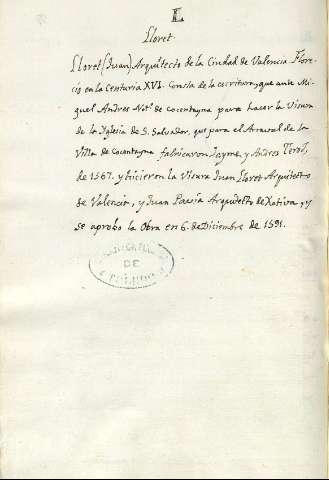 L
Lloret.
Lloret (Juan) Arquitecto de la Ciudad de Valencia Flore-
cio en la Centuria XVI. Consta de la escritura, que ante Mi-
guel Andres Not.º de Cocentayna para hacer la Visura
de la Iglesia de S. Salvador, que para el Arraval de la
Villa de Cocentayna fabricaron Jayme, y Andres Terol,
de 1567. y hicieron la Visura Juan Lloret Arquitecto
de Valencia, y Juan Arquitecto de Xativa, y
se aprobo la Obra en 6. de Diciembre de 1591.
DE